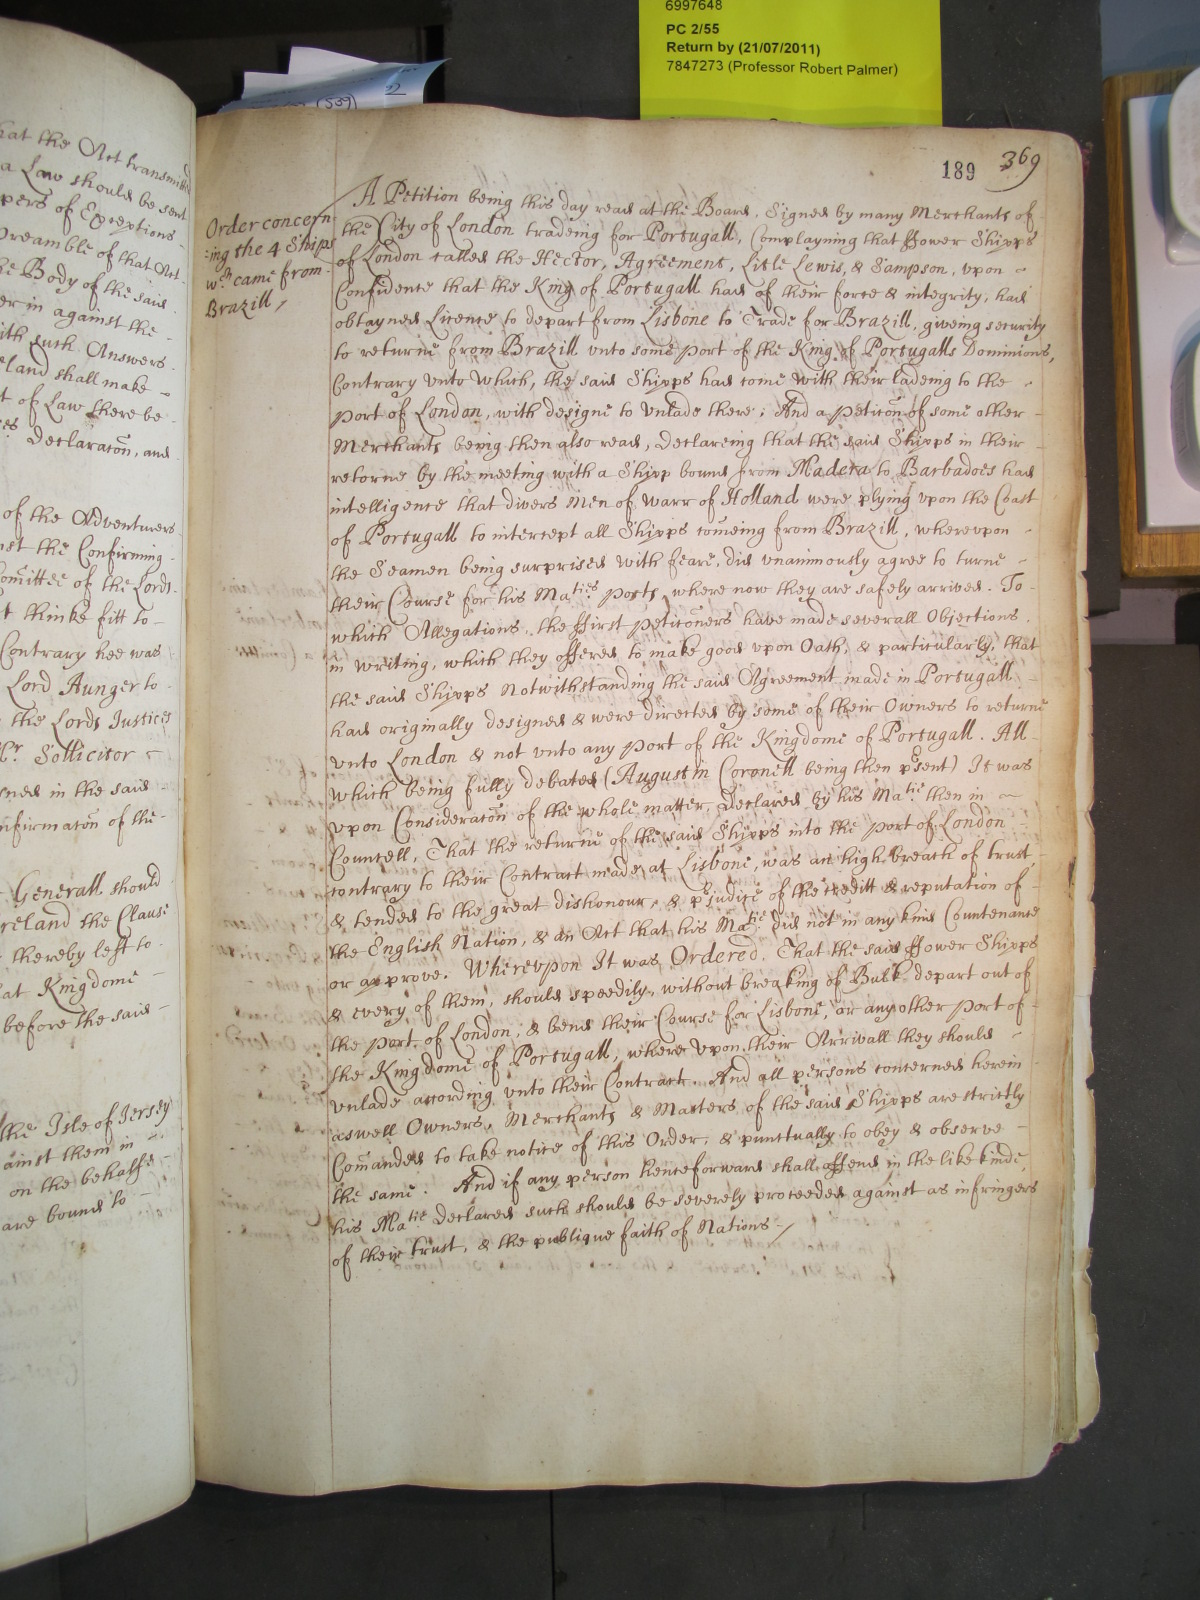 6997648
PC 2/55
Return by (21/07/2011)
7847273 (Professor Robert Palmer)
(539)
189 369
hat the Act transmitted
a Law should be sent
pers of Exceptions
Preamble of that Act
he Body of the said
er in against the
ith such Answers
eland shall make
t of Law there be
es Declaratōn, and
of the Adventurers
nst the Confirming
Comittee of the Lords
t thinke fitt to
Contrary hee was
Lord Aunger to
the Lords Justices
Mr Sollicitor
ned in the said
nfirmatōn of the
Generall should
reland the Clause
thereby left to
at Kingdome
before the said
the Isle of Jersey
ainst them in
on the behalfe
are bound to
Order concern-
:ing the 4 Ships
wch came from
Brazill /
A Petition being this day read at the Board, Signed by many Merchants of
the City of London tradeing for Portugall, Complayning that ffower Shipps
of London called the Hector, Agreement, Litle Lewis, & Sampson, vpon
Confidence that the King of Portugall had of their force & integrity, had
obtayned Licence to depart from Lisbone to Trade for Brazill, giveing security
to returne from Brazill vnto some port of the King of Portugalls Dominions,
Contrary vnto which, the said Shipps had come with their ladeing to the
port of London, with designe to vnlade there; And a peticōn of some other
Merchants being then also read, Declareing that the said Shipps in their
retorne by the meeting with a Shipp bound from Madera to Barbadoes had
intelligence that divers Men of warr of Holland were plying vpon the Coast
of Portugall to intercept all Shipps comeing from Brazill, wherevpon
the Seamen being surprised with feare, did vnanimously agree to turne
their Course for his Maties ports, where now they are safely arrived. To
which Allegations, the ffirst peticōners have made severall Objections
in writing, which they offered to make good vpon Oath, & particularly, that
the said Shipps Notwithstanding the said Agreement made in Portugall
had originally designed & were directed by some of their Owners to returne
vnto London & not vnto any port of the Kingdome of Portugall. All
which being fully debated (Augustin Coronell being then psent) It was
vpon Consideratōn of the whole matter, Declared by his Matie then in
Councell, That the returne of the said Shipps into the port of London
contrary to their Contract made at Lisbone, was an high breach of trust,
& tended to the great dishonour, & pjudice of the creditt & reputation of
the English Nation, & an Act that his Matie did not in any kind Countenance
or approve. Wherevpon It was Ordered. That the said ffower Shipps
& every of them, should speedily, without breaking of Bulk depart out of
the port of London, & bend their Course for Lisbone, or any other port of
the Kingdome of Portugall, where vpon their Arrivall they should
vnlade according vnto their Contract. And all persons concerned herein
aswell Owners, Merchants & Masters of the said Shipps are strictly
Comanded to take notice of this Order, & punctually to obey & observe
the same. And if any person henceforward shall offend in the like kinde
his Matie declared such should be severely proceeded against as infringers
of their trust, & the publique faith of Nations /